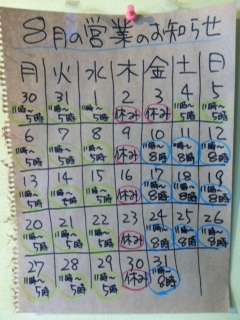 8月の営業のお知らせ
月 火 水 木 金 土 日
30 31 1 2 3 4 5
11時〜5時 11時〜5時 11時〜5時 休み 休み 11時〜5時 11時〜5時
6 7 8 9 10 11 12
11時〜5時 11時〜5時 11時〜5時 休み 11時〜8時 11時〜8時 11時〜8時
13 14 15 16 17 18 19
11時〜5時 11時〜5時 11時〜5時 休み 11時〜8時 11時〜8時 11時〜8時
20 21 22 23 24 25 26
11時〜5時 11時〜5時 11時〜5時 休み 11時〜8時 11時〜8時 11時〜8時
27 28 29 30 31
11時〜5時 11時〜5時 11時〜5時 休み 11時〜8時